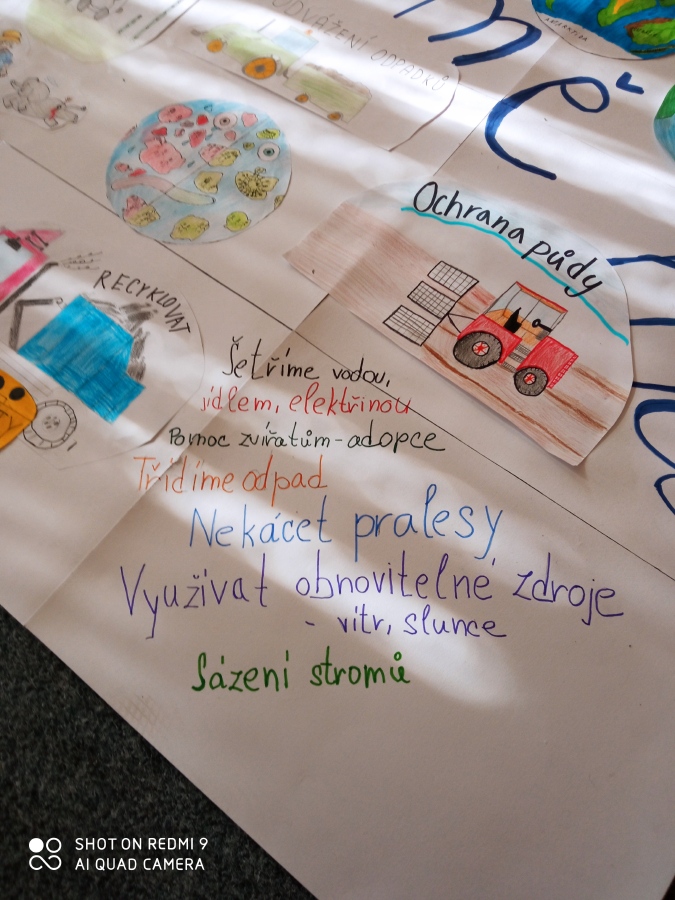 ODVÁŽENÍ ODPADKŮ
Ochrana půdy
RECYKLOVAT
Šetříme vodou,
jídlem, elektřinou
Pomoc zvířatům - adopce
Třídíme odpad
Nekácet pralesy
Využívat obnovitelné zdroje
- vítr, slunce
Sázení stromů
SHOT ON REDMI 9
AI QUAD CAMERA